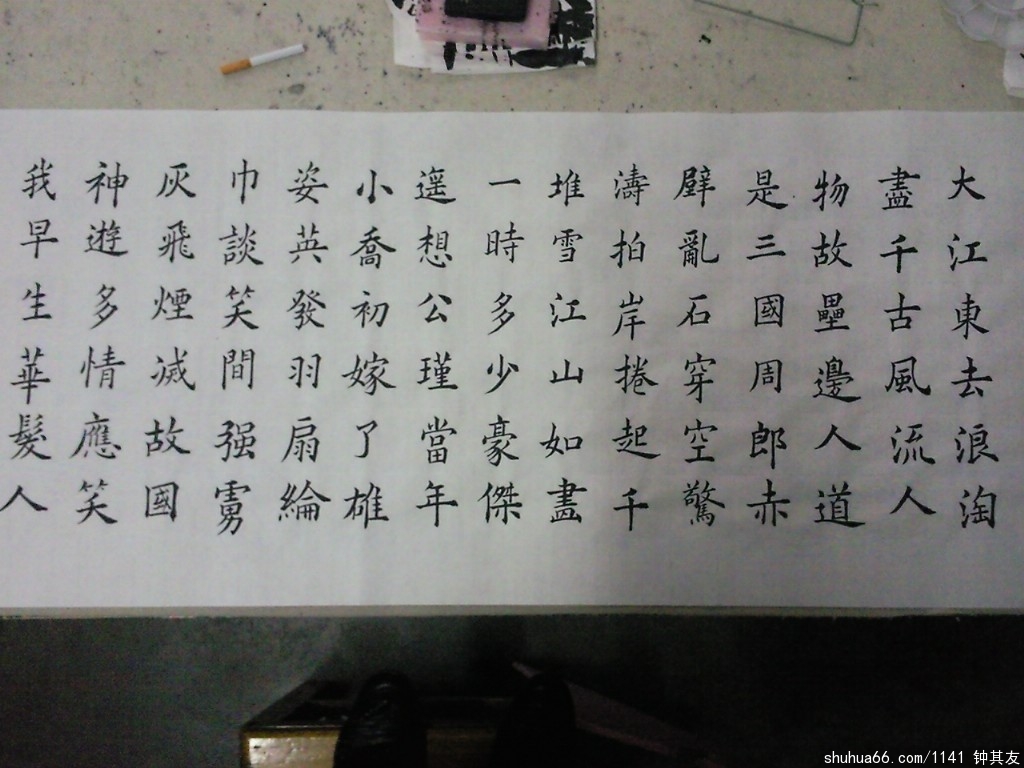 大江東去浪淘
盡千古風流人
物故壘邊人道
是三國周郎赤
壁亂石穿空驚
濤拍岸捲起千
堆雪江山如畫
一時多少豪傑
遥想公瑾當年
小喬初嫁了雄
姿英發羽扇綸
巾談笑間强虜
灰飛煙滅故國
神遊多情應笑
我早生華髮人
shuhua66.com/1141 钟其友